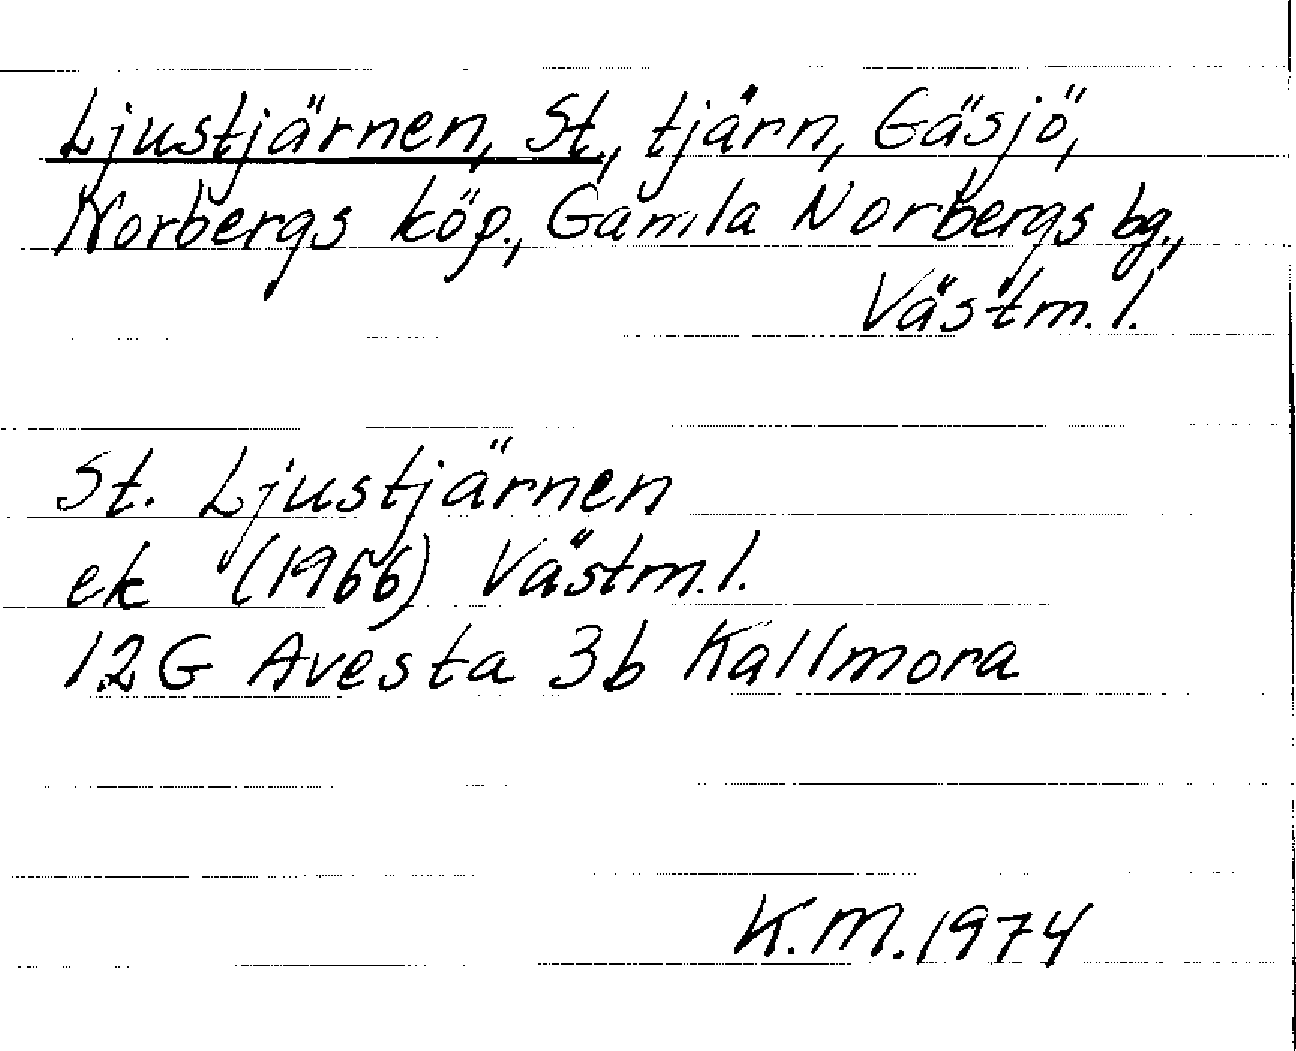 Ljustjärnen, St., tjärn, Gäsjö,
Norbergs köp., Gamla Norbergs bg.,
Västm. l.
St. Ljustjärnen
ek (1966) Västm. l.
12G Avesta 3b Kallmora
K. M. 1974